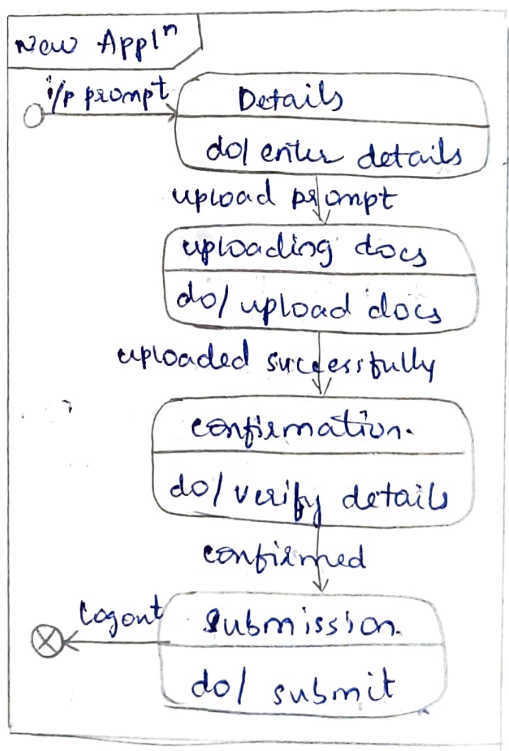 New Applⁿ
i/p prompt
Details
do/ enter details
upload prompt
uploading docs
do/ upload docs
uploaded successfully
confirmation.
do/ verify details
confirmed
Logout
Submission.
do/ submit